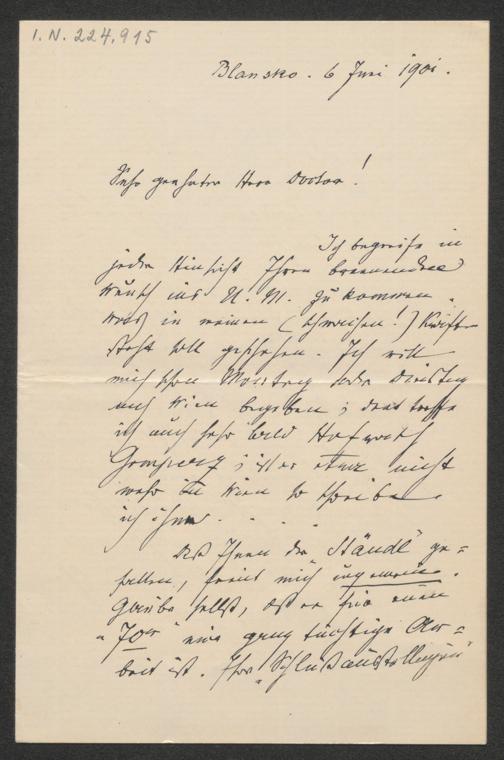 I. N. 224.915
Blansko. 6 Juni 1901.
Sehr geehrter Herr Doctor!
Ich begreife in
jeder Hinsicht Ihren brennenden
Wunsch ins U. M. zu kommen.
was in meinen (schwachen!) Kräften
steht soll geschehen. Ich will
mich schon Montag oder Dienstag
nach Wien begeben; dort treffe
ich auch sehr bald Hofrath
; ist er etwa nicht
mehr in Wien so schreibe
ich ihm. . . .
Daß Ihnen der "Ständl" ge=
fallen, freut mich ungemein.
Glaube selbst, daß er für einen
"70er" eine ganz tüchtige Ar=
beit ist. Ihre "Schlußausstellungen"